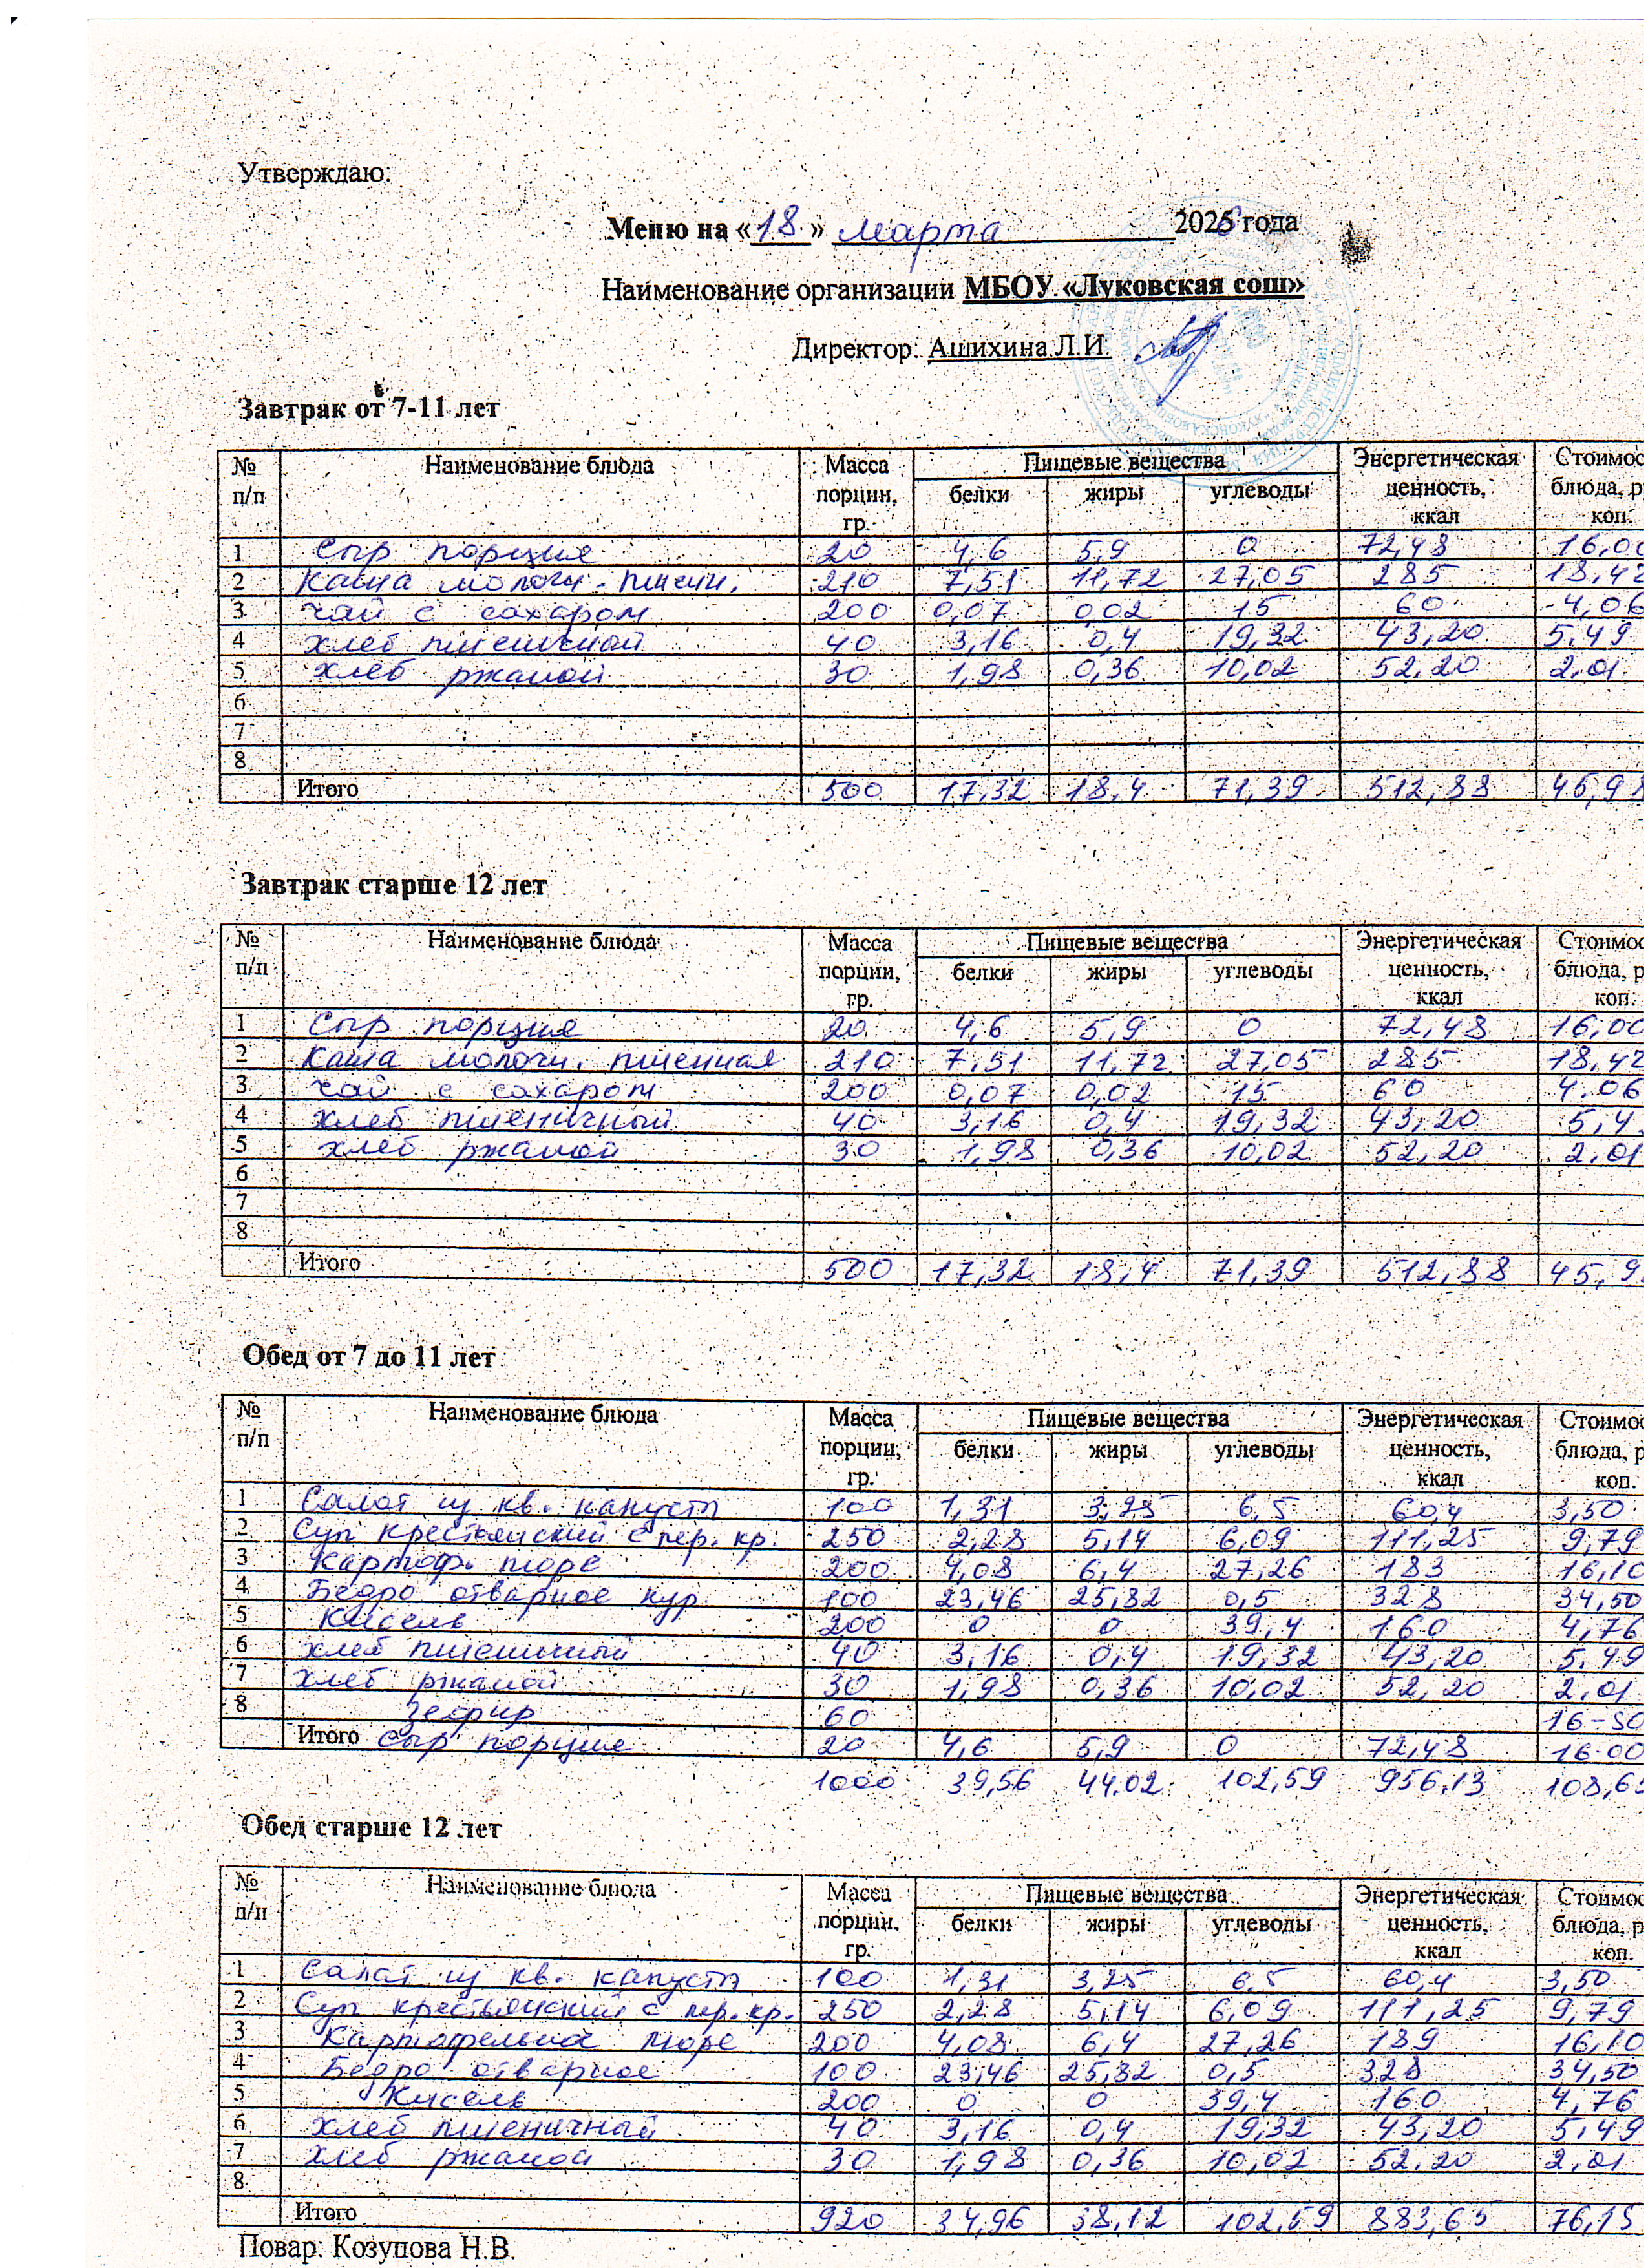 Утверждаю:
Меню на «18» марта 2026 года
Наименование организации МБОУ «Луковская сош»
Директор: Ашихина Л.И.
Завтрак от 7-11 лет
№ п/п Наименование блюда Масса порции, гр. Пищевые вещества белки жиры углеводы Энергетическая ценность, ккал Стоимос блюда, р коп.
1 Сыр порция 20 4,6 5,9 0 72,48 16,00
2 Каша молочн. пшени. 210 7,51 11,72 27,05 285 18,42
3 Чай с сахаром 200 0,07 0,02 15 60 4,06
4 хлеб пшеничной 40 3,16 0,4 19,32 43,20 5,49
5 хлеб ржаной 30 1,98 0,36 10,02 52,20 2,01
6
7
8
Итого 500 17,32 18,4 71,39 512,88 45,98
Завтрак старше 12 лет
№ п/п Наименование блюда Масса порции, гр. Пищевые вещества белки жиры углеводы Энергетическая ценность, ккал Стоимос блюда, р коп.
1 Сыр порция 20 4,6 5,9 0 72,48 16,00
2 Каша молочн. пшенная 210 7,51 11,72 27,05 285 18,42
3 Чай с сахаром 200 0,07 0,02 15 60 4,06
4 хлеб пшеничный 40 3,16 0,4 19,32 43,20 5,4
5 хлеб ржаной 30 1,98 0,36 10,02 52,20 2,01
6
7
8
Итого 500 17,32 18,4 71,39 512,88 45,9
Обед от 7 до 11 лет
№ п/п Наименование блюда Масса порции, гр. Пищевые вещества белки жиры углеводы Энергетическая ценность, ккал Стоимос блюда, р коп.
1 Салат из кв. капусты 100 1,31 3,25 6,5 60,4 3,50
2 Суп крестьянский с пер. кр. 250 2,28 5,14 6,09 111,25 9,79
3 Картоф. пюре 200 4,08 6,4 27,26 183 16,10
4 Бедро отварное кур. 100 23,46 25,82 0,5 328 34,50
5 Кисель 200 0 0 39,4 160 4,76
6 хлеб пшеничный 40 3,16 0,4 19,32 43,20 5,49
7 хлеб ржаной 30 1,98 0,36 10,02 52,20 2,01
8 зефир 60 16-50
Итого сыр порция 20 4,6 5,9 0 72,48 16-00
1000 39,56 44,02 102,59 956,13 108,65
Обед старше 12 лет
№ п/п Наименование блюда Масса порции, гр. Пищевые вещества белки жиры углеводы Энергетическая ценность, ккал Стоимос блюда, р коп.
1 Салат из кв. капусты 100 1,31 3,25 6,5 60,4 3,50
2 Суп крестьянский с пер. кр. 250 2,28 5,14 6,09 111,25 9,79
3 Картофельное пюре 200 4,08 6,4 27,26 189 16,10
4 Бедро отварное 100 23,46 25,82 0,5 328 34,50
5 Кисель 200 0 0 39,4 160 4,76
6 хлеб пшеничный 40 3,16 0,4 19,32 43,20 5,49
7 хлеб ржаной 30 1,98 0,36 10,02 52,20 2,01
8
Итого 920 34,96 38,12 102,59 883,65 76,15
Повар: Козупова Н.В.